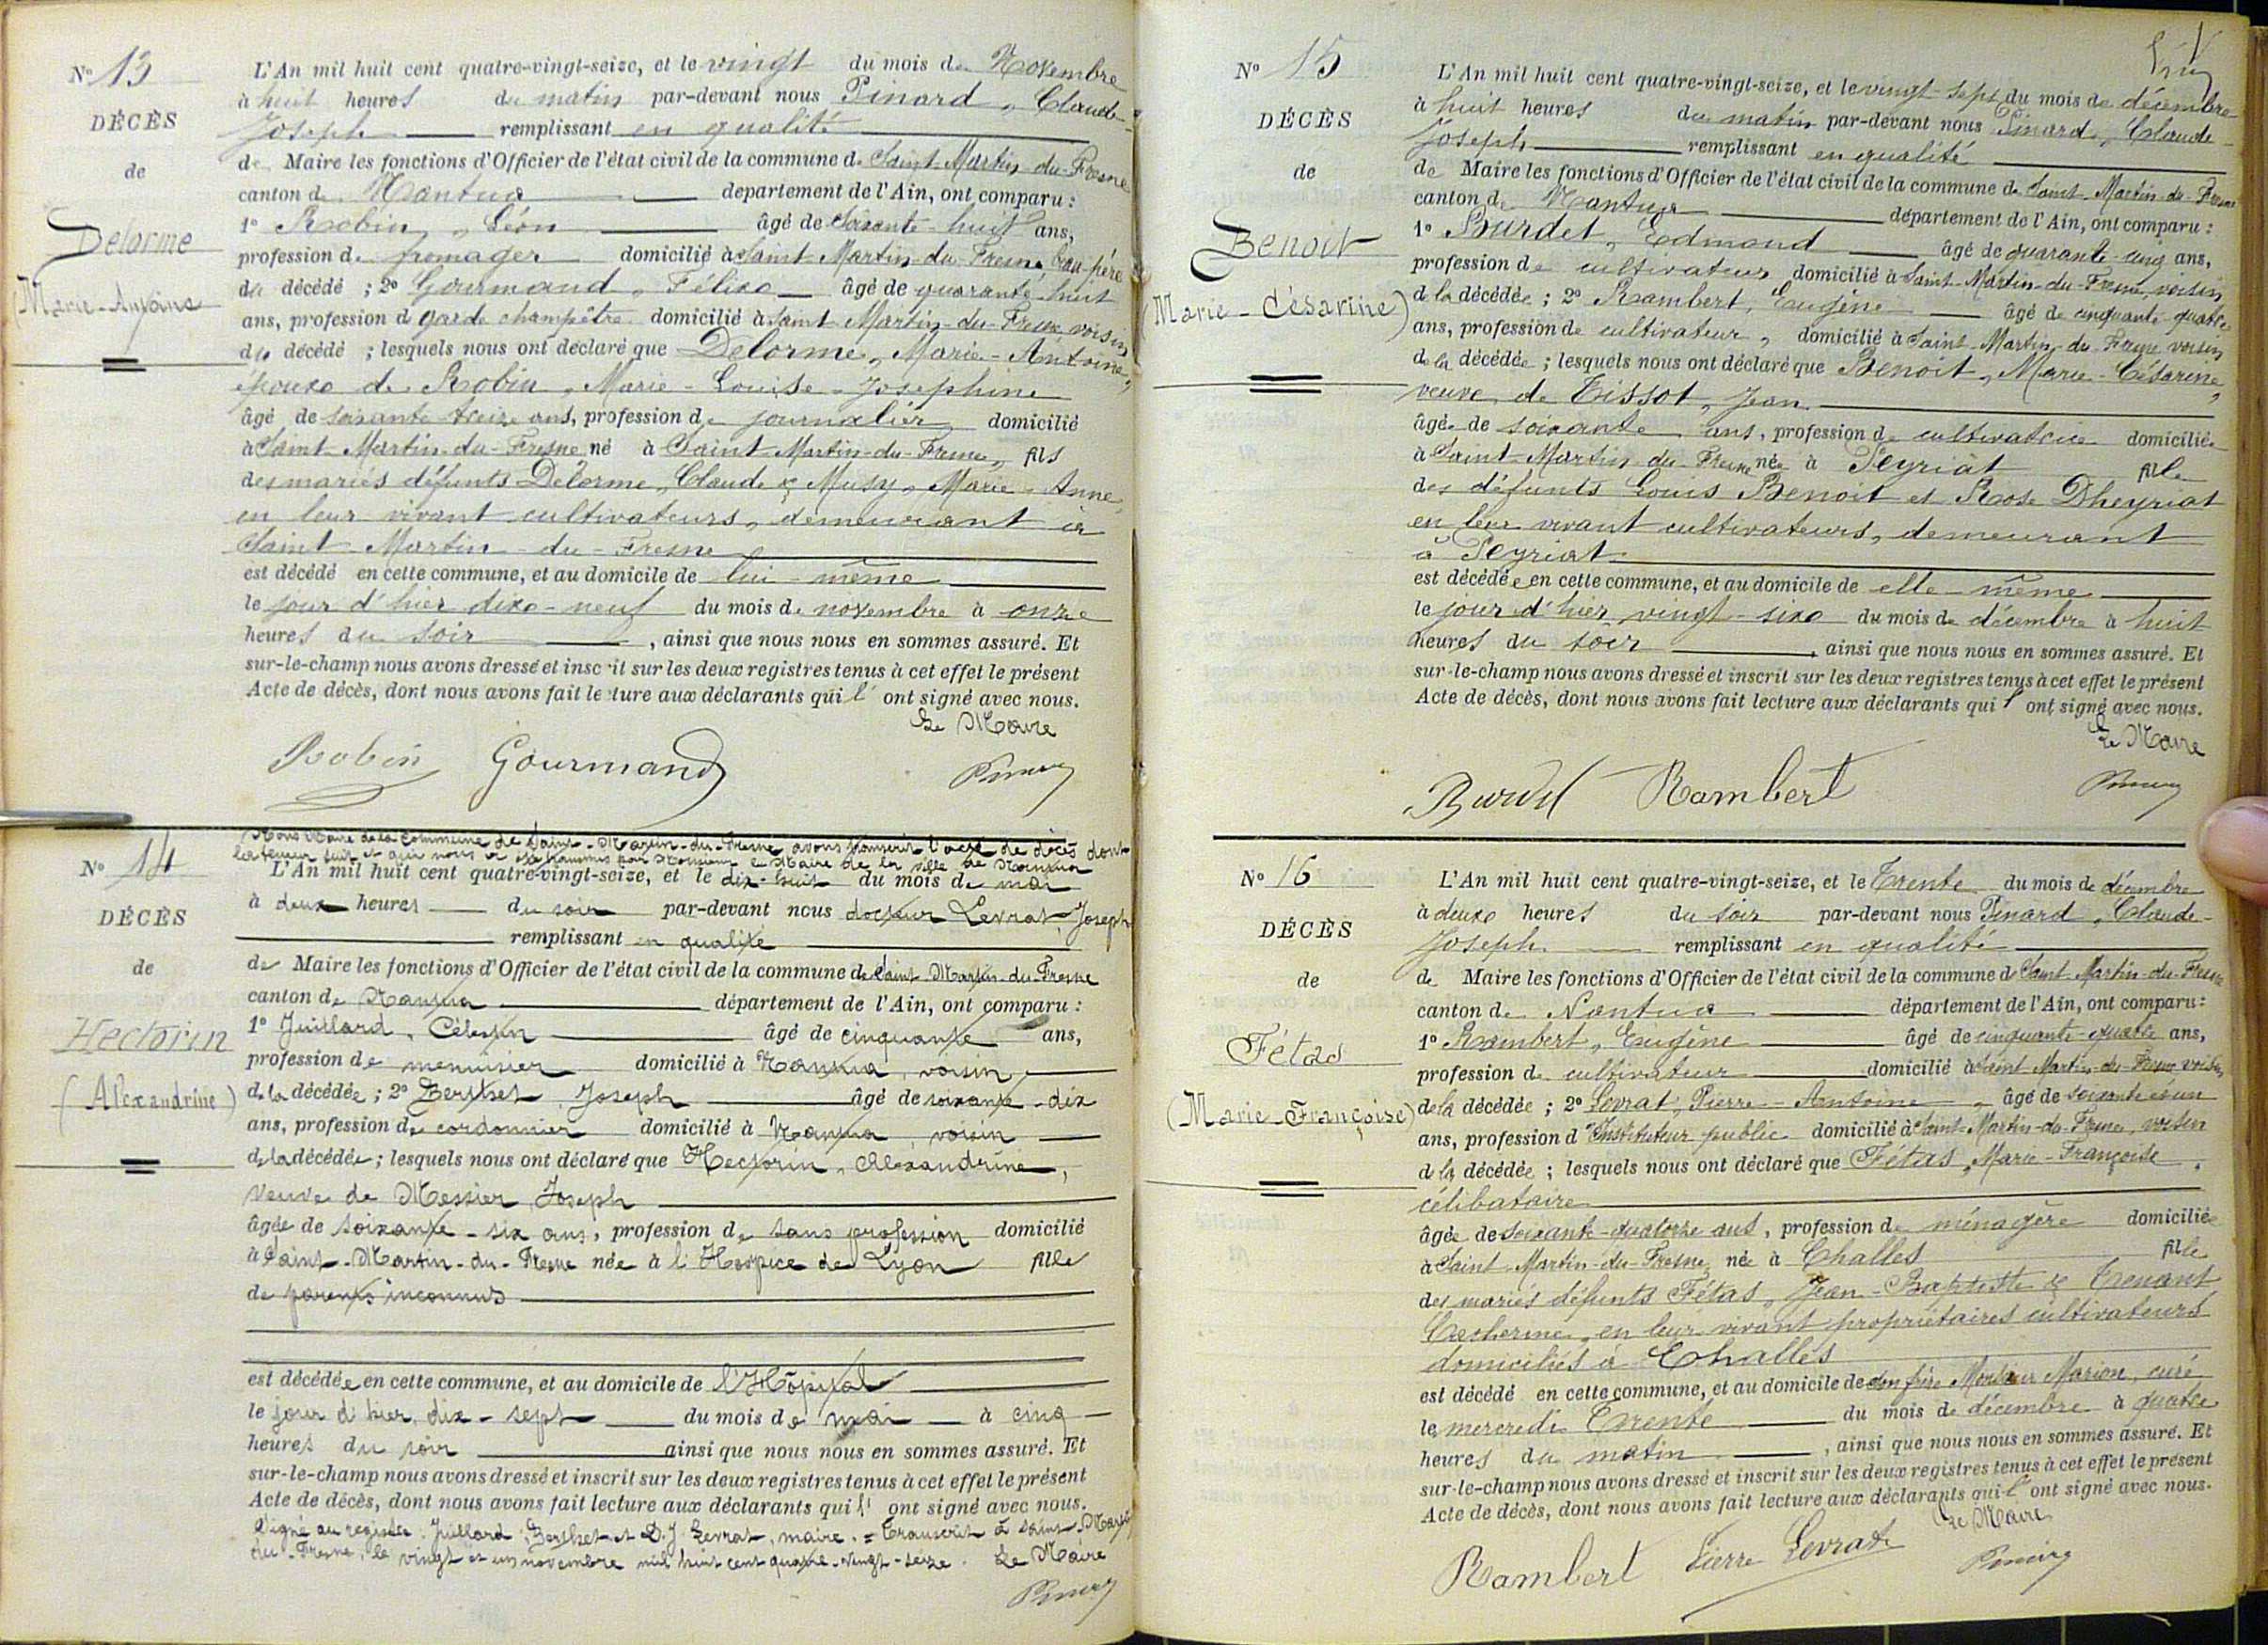 N° 13
DÉCÈS
de
Delorme
(Marie-Antoine
L'An mil huit cent quatre-vingt-seize, et le vingt du mois de Novembre
à huit heures du matin par-devant nous Pinard, Claude-
Joseph remplissant en qualité
de Maire les fonctions d'Officier de l'état civil de la commune de Saint-Martin-du-Fresne
canton de Nantua département de l'Ain, ont comparu :
1° Robin, Léon âgé de soixante-huit ans,
profession de fromager domicilié à Saint-Martin-du-Fresne, beau-père
du décédé ; 2° Gourmand, Félix âgé de quarante huit
ans, profession d garde champêtre domicilié à Saint-Martin-du-Fresne voisin
du décédé ; lesquels nous ont déclaré que Delorme, Marie-Antoine,
époux de Robin, Marie-Louise-Josephine
âgé de soixante treize ans, profession de journalier domicilié
à Saint-Martin-du-Fresne né à Saint-Martin-du-Fresne, fils
des mariés défunts Delorme, Claude & Musy, Marie-Anne,
en leur vivant cultivateurs, demeurant à
Saint-Martin-du-Fresne
est décédé en cette commune, et au domicile de lui-même
le jour d'hier dix-neuf du mois de novembre à onze
heures du soir , ainsi que nous nous en sommes assuré. Et
sur-le-champ nous avons dressé et inscrit sur les deux registres tenus à cet effet le présent
Acte de décès, dont nous avons fait lecture aux déclarants qui l' ont signé avec nous.
Le Maire
Robin Gourmand Pinard
N° 14
DÉCÈS
de
Hectorin
(Alexandrine)
Nous Maire de la Commune de Saint-Martin-du-Fresne avons transcrit l'acte de décès dont
la teneur suit et qui nous a été transmis par Monsieur le Maire de la ville de Nantua
L'An mil huit cent quatre-vingt-seize, et le dix-huit du mois de mai
à deux heures du soir par-devant nous docteur Levrat, Joseph
remplissant en qualité
de Maire les fonctions d'Officier de l'état civil de la commune de Saint-Martin-du-Fresne
canton de Nantua département de l'Ain, ont comparu :
1° Juillard, Célestin âgé de cinquante ans,
profession de menuisier domicilié à Nantua, voisin,
de la décédée ; 2° Berthet, Joseph âgé de soixante-dix
ans, profession de cordonnier domicilié à Nantua, voisin
de la décédée ; lesquels nous ont déclaré que Hectorin, Alexandrine,
veuve de Messier, Joseph
âgée de soixante-six ans, profession de sans profession domicilié
à Saint-Martin-du-Fresne née à l'Hospice de Lyon fille
de parents inconnus
est décédée en cette commune, et au domicile de l'Hôpital
le jour d'hier, dix-sept du mois de mai à cinq
heures du soir ainsi que nous nous en sommes assuré. Et
sur-le-champ nous avons dressé et inscrit sur les deux registres tenus à cet effet le présent
Acte de décès, dont nous avons fait lecture aux déclarants qui l' ont signé avec nous.
Signé au registre : Juillard, Berthet et D. J. Levrat, maire. = Transcrit à Saint-Martin
du-Fresne, le vingt et un novembre mil huit cent quatre-vingt-seize. Le Maire
Pinard
N° 15
DÉCÈS
de
Benoit
(Marie-Césarine)
L'An mil huit cent quatre-vingt-seize, et le vingt-sept du mois de décembre
à huit heures du matin par-devant nous Pinard, Claude-
Joseph remplissant en qualité
de Maire les fonctions d'Officier de l'état civil de la commune de Saint-Martin-du-Fresne
canton de Nantua département de l'Ain, ont comparu :
1° Burdet, Edmond âgé de quarante-cinq ans,
profession de cultivateur domicilié à Saint-Martin-du-Fresne, voisin
de la décédée ; 2° Rambert, Eugène âgé de cinquante-quatre
ans, profession de cultivateur, domicilié à Saint-Martin-du-Fresne voisin
de la décédée ; lesquels nous ont déclaré que Benoit, Marie-Césarine,
veuve de Tissot, Jean
âgée de soixante ans, profession de cultivatrice domiciliée
à Saint-Martin-du-Fresne née à Peyriat fille
des défunts Louis Benoit et Rose Dheyriat
en leur vivant cultivateurs, demeurant
à Peyriat
est décédée en cette commune, et au domicile de elle-même
le jour d'hier, vingt-six du mois de décembre à huit
heures du soir , ainsi que nous nous en sommes assuré. Et
sur-le-champ nous avons dressé et inscrit sur les deux registres tenus à cet effet le présent
Acte de décès, dont nous avons fait lecture aux déclarants qui l' ont signé avec nous.
Le Maire
Burdet Rambert Pinard
N° 16
DÉCÈS
de
Fétas
(Marie-Françoise)
L'An mil huit cent quatre-vingt-seize, et le Trente du mois de décembre
à deux heures du soir par-devant nous Pinard, Claude-
Joseph remplissant en qualité
de Maire les fonctions d'Officier de l'état civil de la commune de Saint-Martin-du-Fresne
canton de Nantua département de l'Ain, ont comparu :
1° Rambert, Eugène âgé de cinquante-quatre ans,
profession de cultivateur domicilié à Saint-Martin-du-Fresne voisin
de la décédée ; 2° Levrat, Pierre-Antoine, âgé de soixante et un
ans, profession d'Instituteur public domicilié à Saint-Martin-du-Fresne, voisin
de la décédée ; lesquels nous ont déclaré que Fétas, Marie-Françoise,
célibataire
âgée de soixante-quatorze ans, profession de ménagère domiciliée
à Saint-Martin-du-Fresne née à Challes fille
des mariés défunts Fétas, Jean-Baptiste & Trenant
Catherine, en leur vivant propriétaires cultivateurs
domiciliés à Challes
est décédé en cette commune, et au domicile de son frère Monsieur Marion, curé
le mercredi Trente du mois de décembre à quatre
heures du matin , ainsi que nous nous en sommes assuré. Et
sur-le-champ nous avons dressé et inscrit sur les deux registres tenus à cet effet le présent
Acte de décès, dont nous avons fait lecture aux déclarants qui l' ont signé avec nous.
Le Maire
Rambert Pierre Levrat Pinard